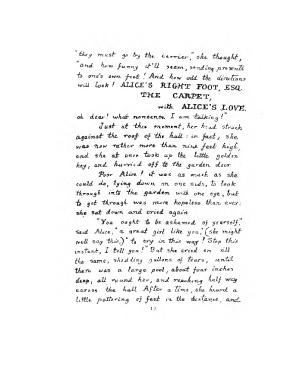 "they must go by the carrier," she thought,
"and how funny it'll seem, sending presents
to one's own feet! And how odd the directions
will look! ALICE'S RIGHT FOOT, ESQ.
THE CARPET,
with ALICE'S LOVE.
oh dear! what nonsense I am talking!"
Just at this moment, her head struck
against the roof of the hall: in fact, she
was now rather more than nine feet high,
and she at once took up the little golden
key, and hurried off to the garden door.
Poor Alice! it was as much as she
could do, lying down on one side, to look
through into the garden with one eye, but
to get through was more hopeless than ever:
she sat down and cried again.
"You ought to be ashamed of yourself,"
said Alice, "a great girl like you," (she might
well say this,) "to cry in this way! Stop this
instant, I tell you!" But she cried on all
the same, shedding gallons of tears, until
there was a large pool, about four inches
deep, all round her, and reaching half way
across the hall. After a time, she heard a
little pattering of feet in the distance, and